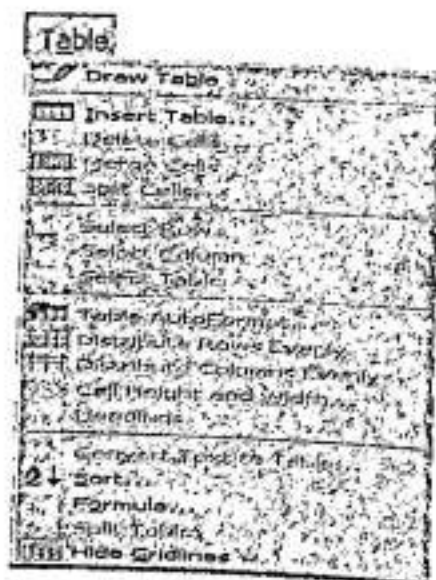 Table
Draw Table
Insert Table...
Delete Cells...
Merge Cells
Split Cells...
Select Row
Select Column
Select Table
Table AutoFormat...
Distribute Rows Evenly
Distribute Columns Evenly
Cell Height and Width...
Headings
Convert Text to Table...
Sort...
Formula...
Split Table
Hide Gridlines